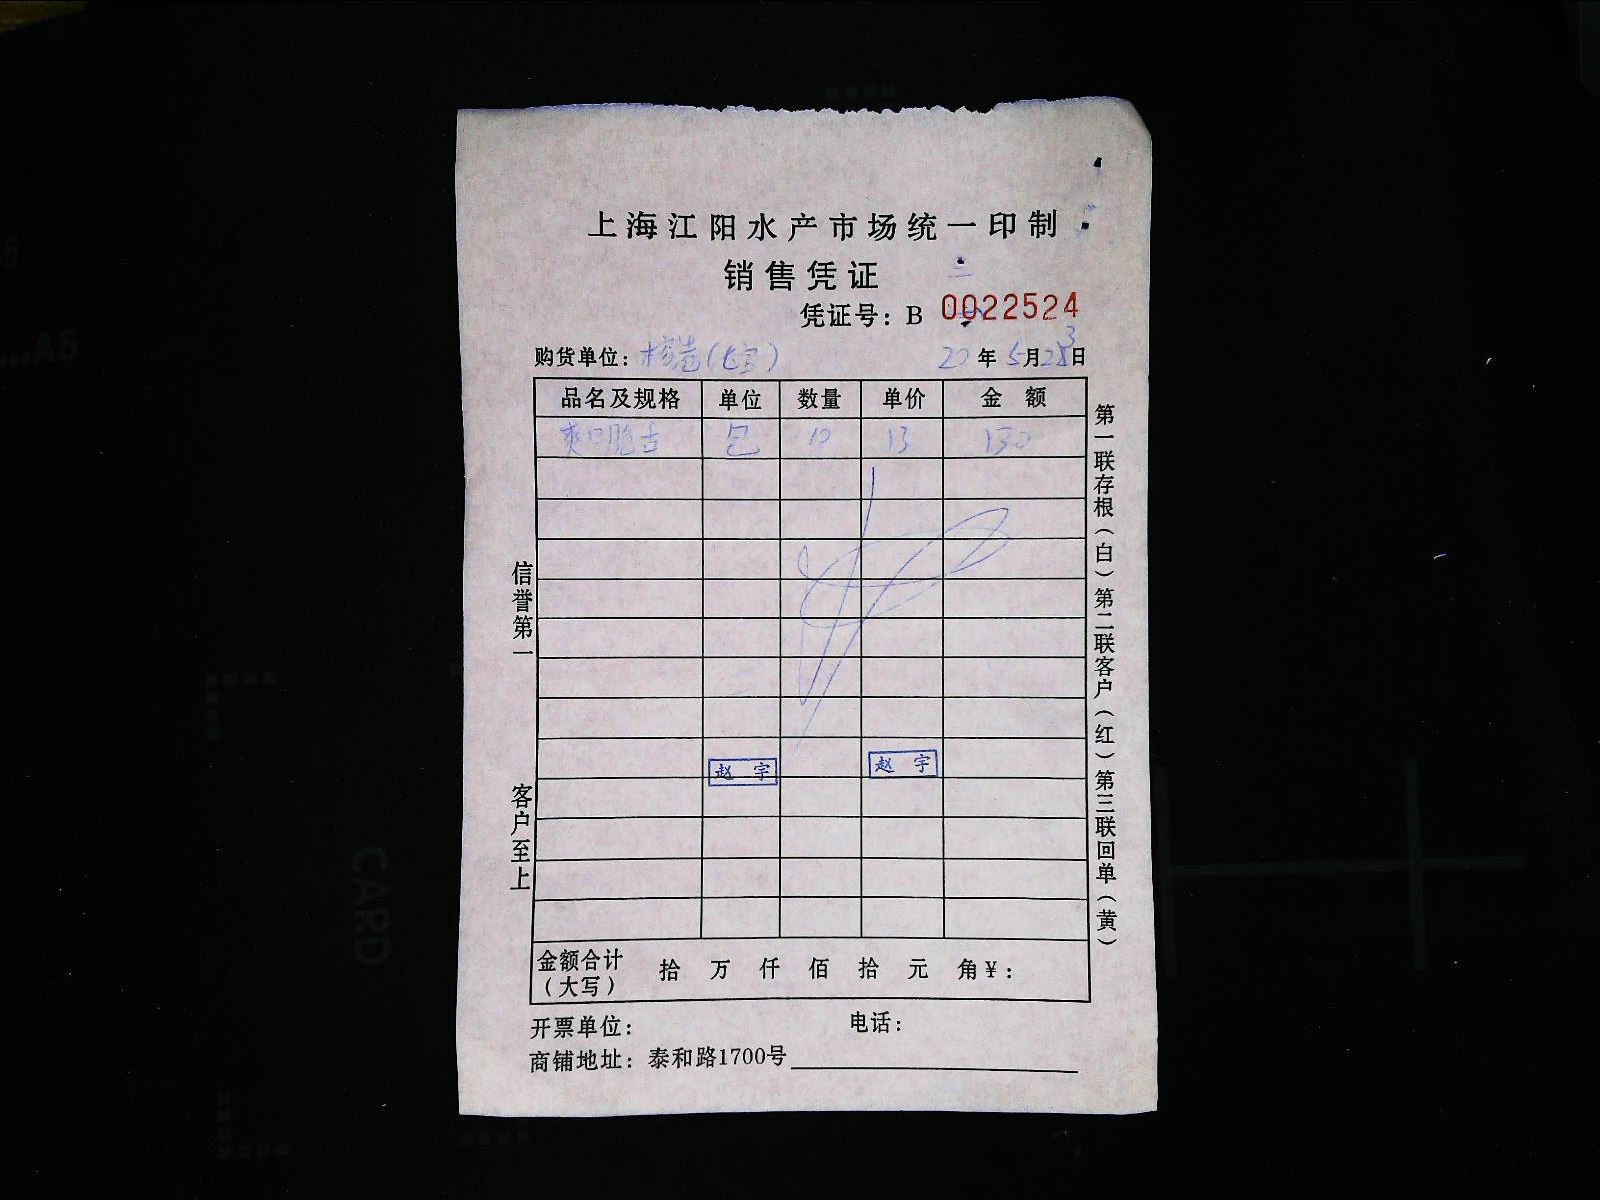 上海江阳水产市场统一印制
销售凭证
凭证号：B 0022524
购货单位： 20年5月 日
品名及规格 单位 数量 单价 金 额
爽口脆舌 包 10 13 130
赵 宇 赵 宇
金额合计（大写） 拾 万 仟 佰 拾 元 角¥：
开票单位： 电话：
商铺地址：泰和路1700号
信誉第一
客户至上
第一联存根（白）第二联客户（红）第三联回单（黄）
CARD
A5